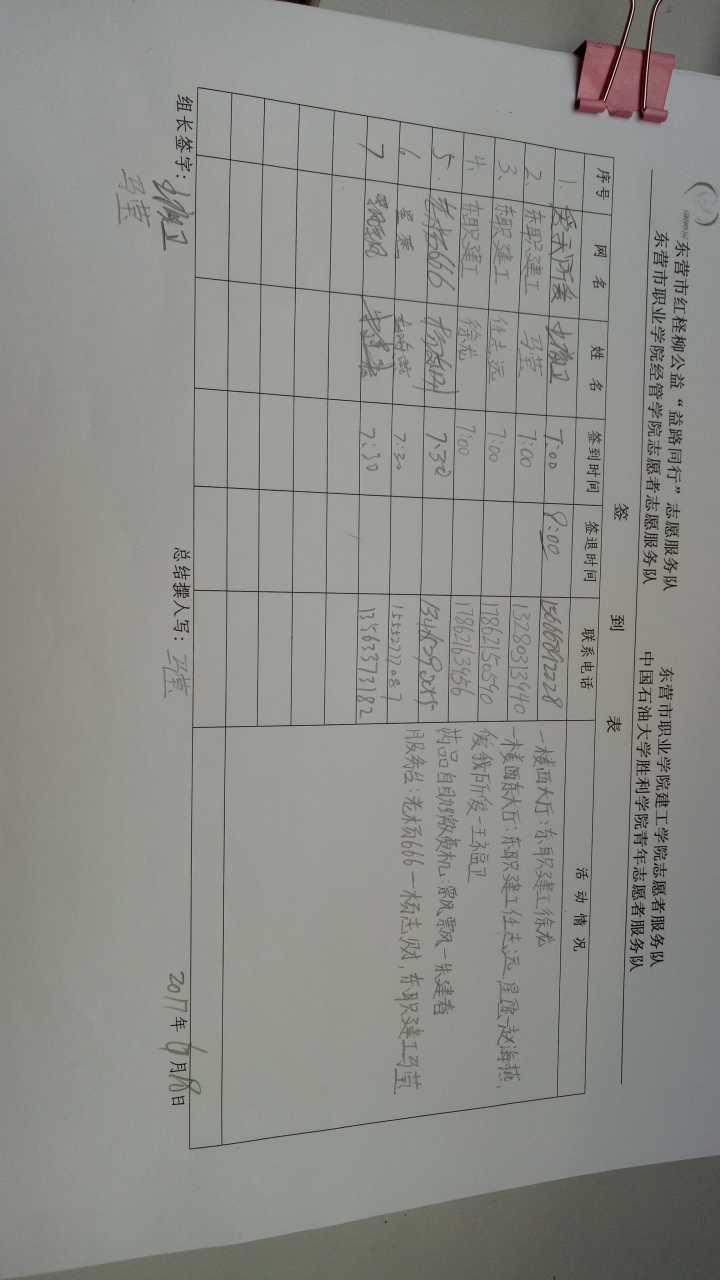 东营市红柽柳公益“益路同行”志愿服务队 东营市职业学院建工学院志愿者服务队
东营市职业学院经管学院志愿者志愿服务队 中国石油大学胜利学院青年志愿者服务队
签 到 表
序号 网 名 姓 名 签到时间 签退时间 联系电话 活 动 情 况
1、 7:00 9:00
2、 东职建工 马莹 7:00 13280313940
3、 东职建工 任志远 7:00 17862156590
4、 东职建工 徐龙 7:00 17862163956
5、 老杨666 7:30
6、 7:30 15552777087
7 7:30 13563373182
一楼西大厅:东职建工徐龙
一楼西东大厅:东职建工任志远
王福卫
药品自助缴费机:飘飘一张建春
服务台:老杨666一杨志财,东职建工马莹
组长签字: 王福卫 总结撰人写: 马莹 2017年6月18日
马莹